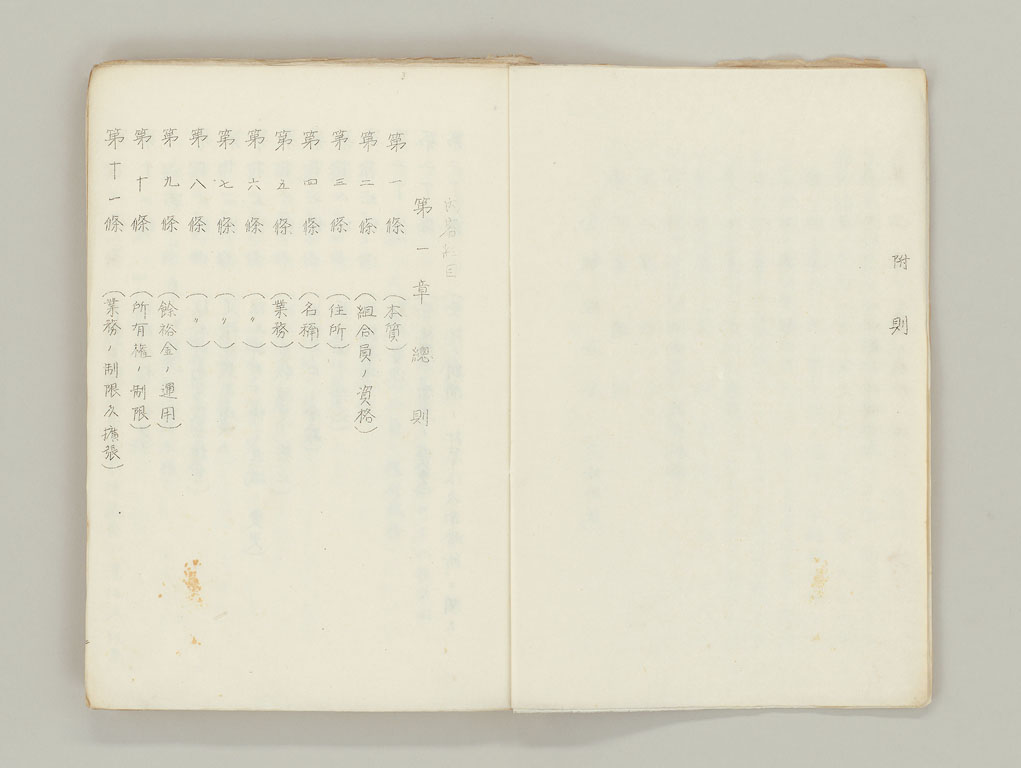 附則
内容種目
第一章 總則
第一條 （本質）
第二條 （組合員ノ資格）
第三條 （住所）
第四條 （名稱）
第五條 （業務）
第六條 （〃）
第七條 （〃）
第八條 （〃）
第九條 （餘裕金ノ運用）
第十條 （所有權ノ制限）
第十一條 （業務ノ制限及擴張）